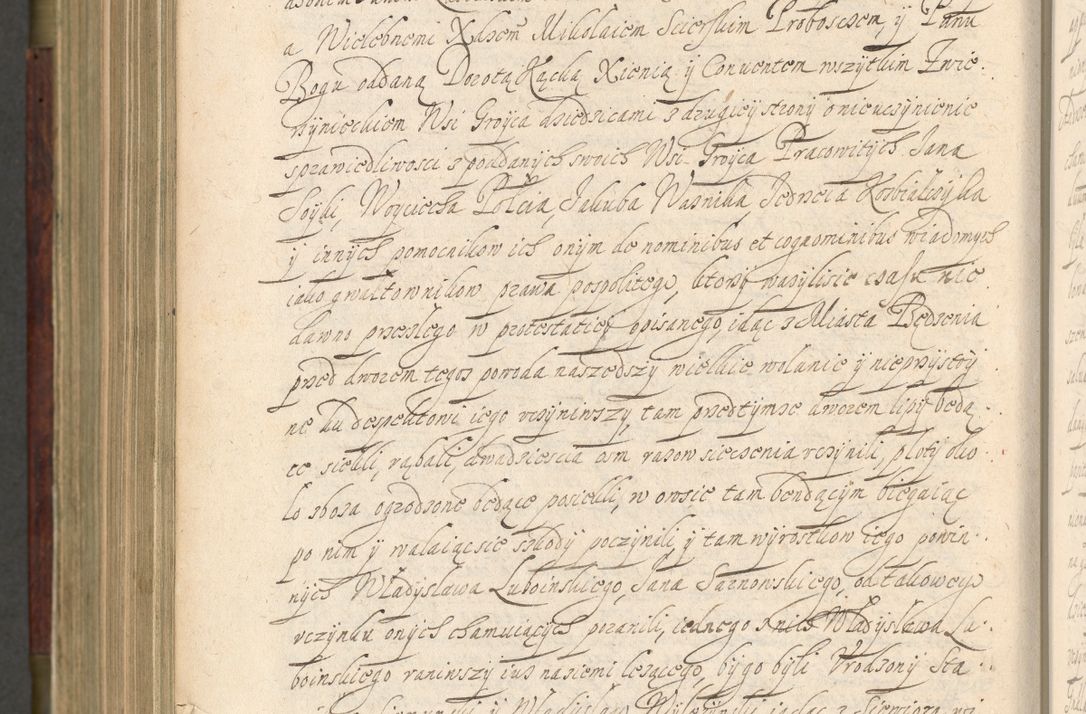 a Wielebnemi Xdzem Mikolaiem Scierskim Proboszczem, ÿ Panu
Bogu oddaną Dorotą Kącką Xienią ÿ Conuentem wszytkim Zwie-
rzÿnieckiem Wsi Groÿca dziedzicami z drugieÿ stronÿ o nieuczÿnienie
sprawiedliwosci z poddanÿch swoich Wsi Groÿca Pracowitÿch Jana
Soÿki, Woÿciecha Jakuba Wasnika, Jedrzeia
ÿ innÿch pomocnikow ich onÿm de nominibus et cognominibus wiadomych
iako gwałtownikow prawa pospolitego, ktorzÿ wazÿlisie czasu nie
dawno przeszlego w protestatieÿ opisanego, idąc z Miasta Będzenia
przed dworem tegoz powoda naszedszy wielkie wolanie ÿ nieprzÿstoÿ
ne ku despektowi iego vczÿniwszy, tam przedtÿmze dworem lipÿ będą-
ce siekli, rąbali, dwadziescia osm razow sieczenia vczÿnili, plotÿ oko
lo zboza ogrodzone będące posiekli, w owsie tam bendącÿm biegaiąc
po nim ÿ walaiącsie szkodÿ poczÿnili ÿ tam wÿrostkow iego powin-
nÿch Władÿslawa Luboinskiego, Jana Sarnowskiego, od takowego
vczÿnku onÿch hamuiącÿch poranili, iednego z nich Władÿslawa Lu-
boinskiego raniwszÿ iuz naziemi lezącego, bÿgo bÿli Vrodzonÿ Sta-
ÿ Władislaw iadąc z Siewiora